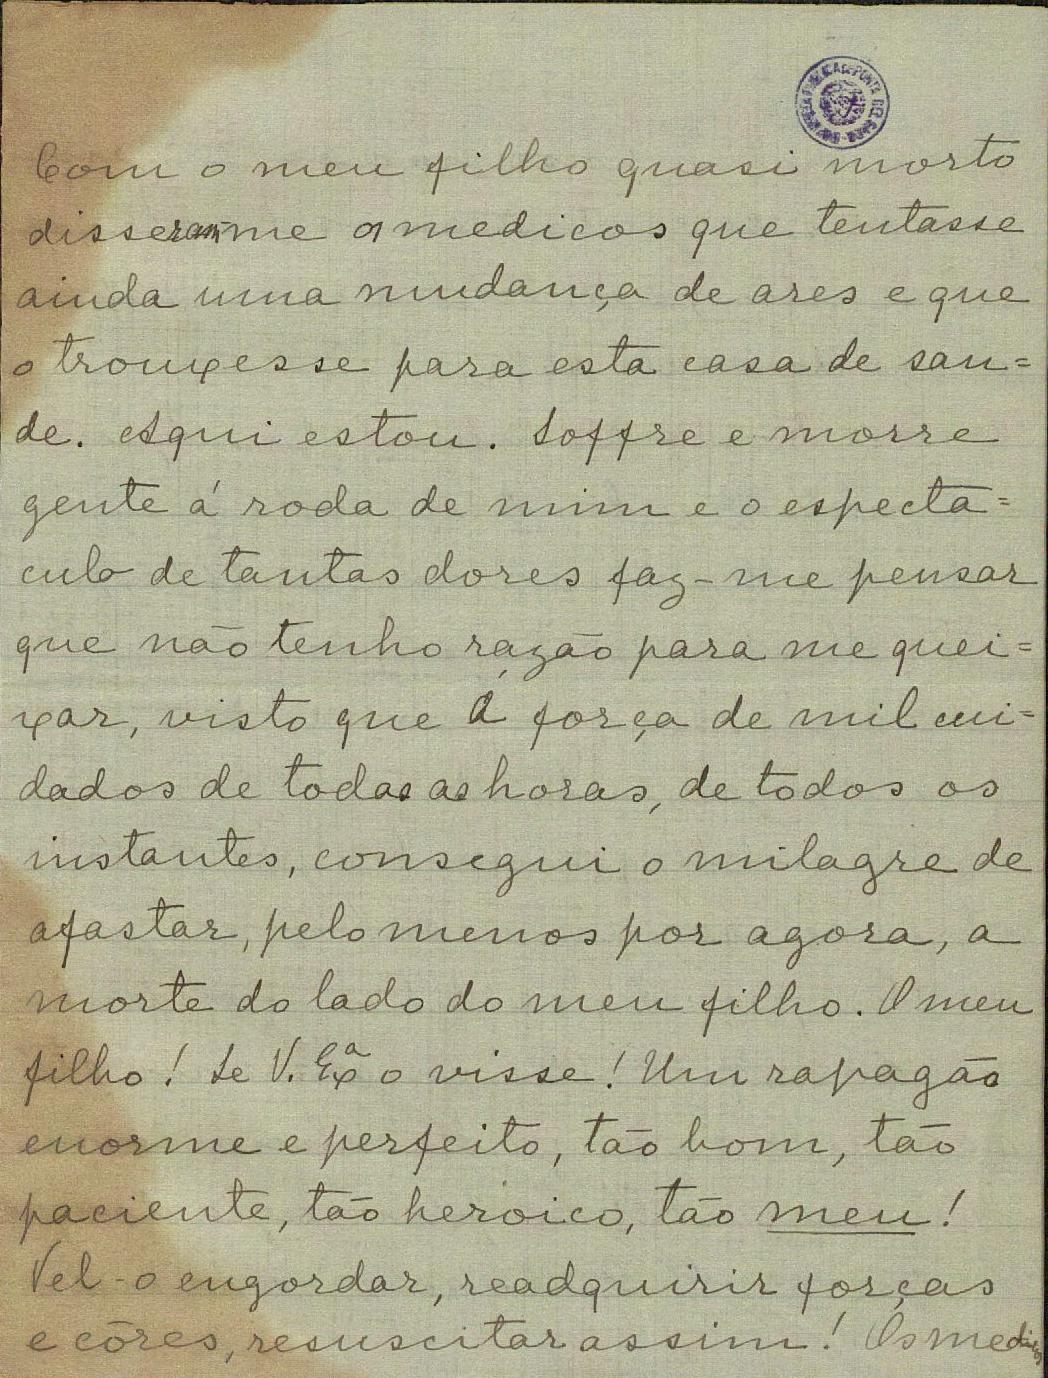 Com o meu filho quasi morto
disseram-me os medicos que tentasse
ainda uma mudança de ares e que
o trouxesse para esta casa de sau=
de. Aqui estou. Soffre e morre
gente á roda de mim e o especta=
culo de tantas dores faz-me pensar
que não tenho razão para me quei=
xar, visto que á força de mil cui=
dados de todas as horas, de todos os
instantes, consegui o milagre de
afastar, pelo menos por agora, a
morte do lado do meu filho. O meu
filho! Se V. Exª o visse! Um rapagão
enorme e perfeito, tão bom, tão
paciente, tão heroico, tão meu!
Vel-o engordar, readquirir forças
e côres, resuscitar assim! Os medicos